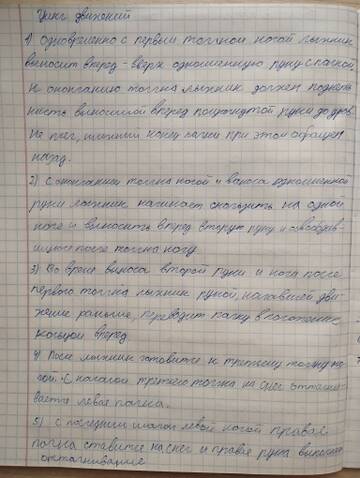 Цикл движений
1) Одновременно с первым толчком ногой лыжник
выносит вперед-вверх одноименную руку с палкой
К окончанию толчка лыжник должен поднять
кисть выносимой вперед полусогнутой руки до уров.
нижний конец палки при этом обращен
назад.
2) С окончанием толчка ногой и выноса одноименной
руки лыжник начинает скользить на одной
ноге и выносить вперед вторую руку и освободив-
шуюся после толчка ногу.
3) Во время выноса второй руки и ноги после
первого толчка лыжник рукой, начавшей дви-
жение раньше, переводит палку в положение
кольцом вперед.
4) После лыжник готовится к третьему толчку но-
гой. С началом третьего толчка на снег
левая палка.
5) С последним шагом левой ногой правая
палка ставится на снег и правая рука
отталкивание